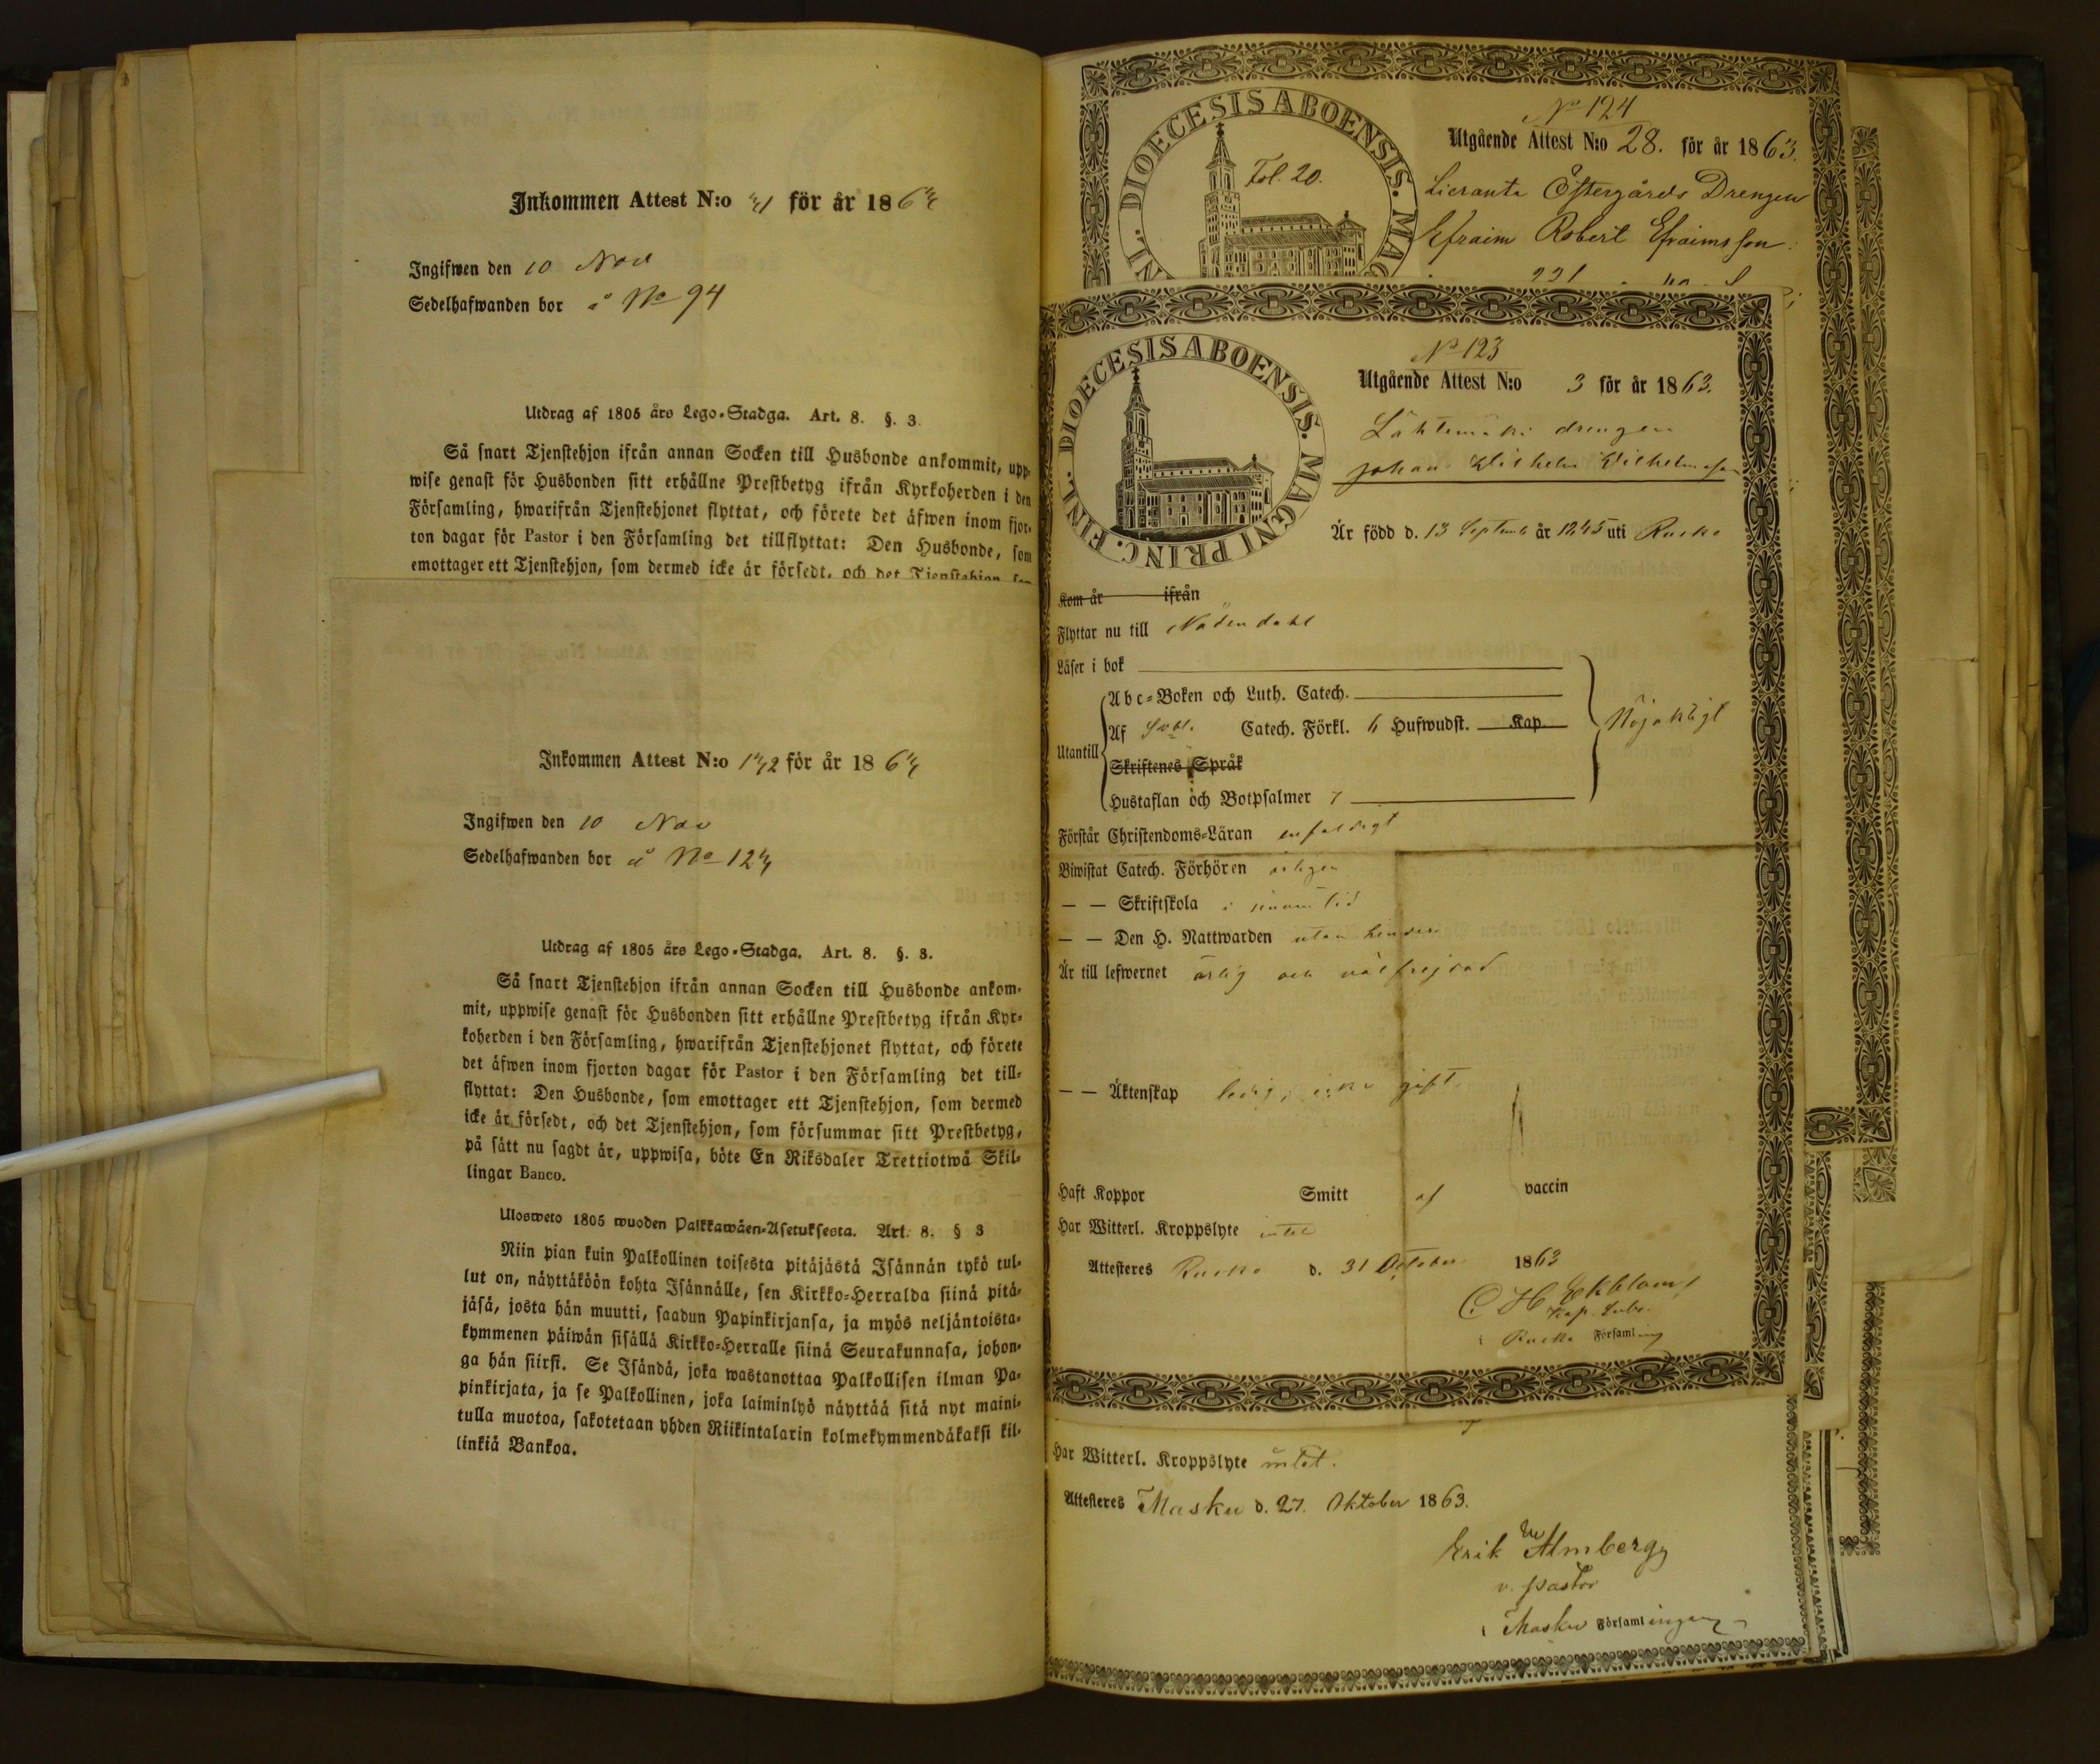 Inkommen Attest N:o för år 186
Ingifwen den 10 Nov
Sedelhafwanden bor å No 94
Utdrag af 1805 års Lego-Stadga. Art. 8. §. 3.
Så snart Tjenstehjon ifrån annan Socken till Husbonde ankommit, upp-
wise genast för Husbonden sitt erhållne Prestbetyg ifrån Kyrkoherden i den
Församling, hwarifrån Tjenstehjonet flyttat, och förete det äfwen inom fjor-
ton dagar för Pastor i den Församling det tillflyttat: Den Husbonde, som
emottager ett Tjenstehjon, som dermed icke är försedt, och det Tjenstehjon, som
Inkommen Attest N:o för år 186
Ingifwen den 10 Nov
Sedelhafwanden bor å No
Utdrag af 1805 års Lego-Stadga. Art. 8. §. 3.
Så snart Tjenstehjon ifrån annan Socken till Husbonde ankom-
mit, uppwise genast för Husbonden sitt erhållne Prestbetyg ifrån Kyr-
koherden i den Församling, hwarifrån Tjenstehjonet flyttat, och förete
det äfwen inom fjorton dagar för Pastor i den Församling det till-
flyttat: Den Husbonde, som emottager ett Tjenstehjon, som dermed
icke är försedt, och det Tjenstehjon, som försummar sitt Prestbetyg,
på sätt nu sagdt är, uppwisa, böte En Riksdaler Trettiotwå Skil-
lingar Banco.
Ulosweto 1805 wuoden Palkkawäen-Asetuksesta. Art. 8. § 3
Niin pian kuin Palkollinen toisesta pitäjästä Isännän tykö tul-
lut on, näyttäköön kohta Isännälle, sen Kirkko-Herralda siinä pitä-
jäsä, josta hän muutti, saadun Papinkirjansa, ja myös neljäntoista-
kymmenen päiwän sisällä Kirkko-Herralle siinä Seurakunnasa, johon-
ga hän siirsi. Se Isändä, joka wastanottaa Palkollisen ilman Pa-
pinkirjata, ja se Palkollinen, joka laiminlyö näyttää sitä nyt maini-
tulla muotoa, sakotetaan yhden Riikintalarin kolmekymmendäkaksi kil-
linkiä Bankoa.
DIOECESIS ABOENSIS. MAG
Fol. 20.
No 124
Utgående Attest N:o 28. för år 1863.
Östergårds Drengen
Efraim Robert Efraimsson
DIOECESIS ABOENSIS. MAGNI PRINC. FINL.
No 123
Utgående Attest N:o 3 för år 1863.
Lähtemäki drengen
Johan Wilhelm Wilhelmsson
Är född d. 13 Septemb år 1845 uti Rusko
Kom år ifrån
Flyttar nu till Nådendahl
Läser i bok
Abc-Boken och Luth. Catech.
Af Svbl. Catech. Förkl. 6 Hufwudst. Kap.
Nöjaktigt
Utantill
Skriftenes Språk
Hustaflan och Botpsalmer 7
Förstår Christendoms-Läran enfaldigt
Biwistat Catech. Förhören årligen
— — Skriftskola i sinom tid
— — Den H. Nattwarden utan hinder
Är till lefwernet ärlig och välfrejdad
— — Äktenskap ledig, icke gift.
Haft Koppor Smitt af vaccin
Har Witterl. Kroppslyte intet
Attesteres Rusko d. 31 October 1863
C. H. Ekblom
Kap. Subs.
i Rusko Församling
Har Witterl. Kroppslyte intet.
Attesteres Masku d. 27. Oktober 1863.
Erik Wm Almberg
v. pastor
i Masku Församlingen